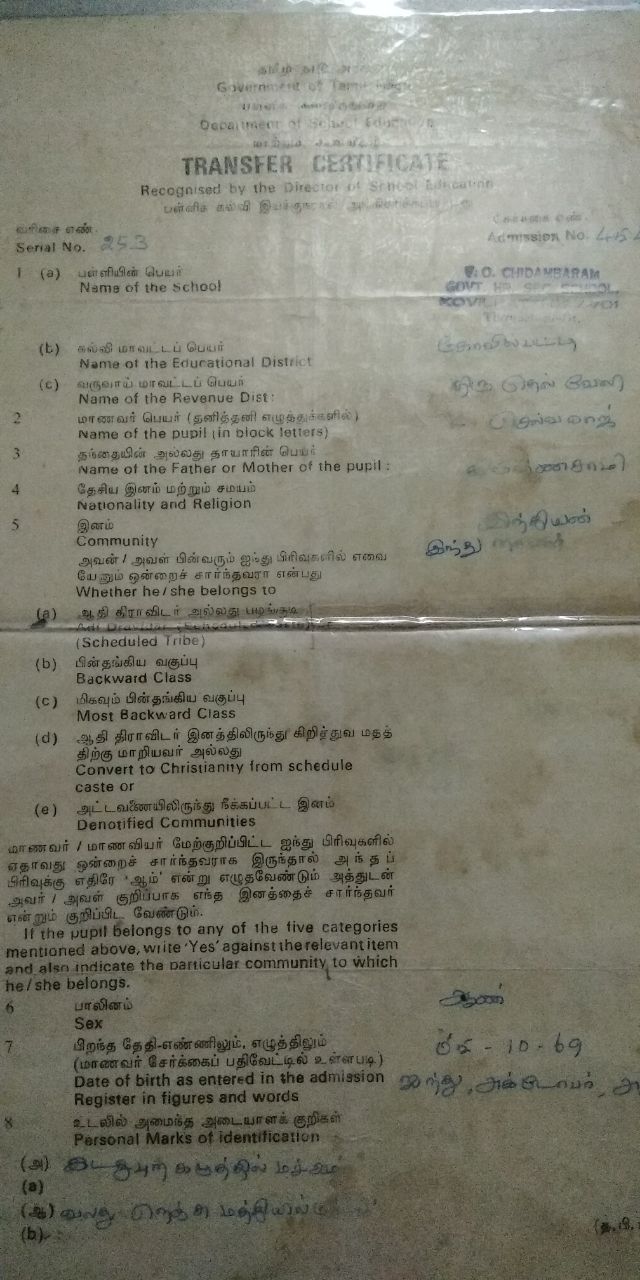 தமிழ் நாடு அரசு
Government of Tamil Nadu
Department of School Education
TRANSFER CERTIFICATE
Recognised by the Director of School Education
வரிசை எண்.
Serial No. 253
Admission No.
1 (a) பள்ளியின் பெயர்
Name of the School
V. O. CHIDAMBARAM
GOVT HR. SEC SCHOOL,
(b) கல்வி மாவட்டப் பெயர்
Name of the Educational District
கோவில்பட்டி
(c) வருவாய் மாவட்டப் பெயர்
Name of the Revenue Dist:
திருநெல்வேலி
2 மாணவர் பெயர் (தனித்தனி எழுத்துக்களில்)
Name of the pupil (in block letters)
செல்வராஜ்
3 தந்தையின் அல்லது தாயாரின் பெயர்
Name of the Father or Mother of the pupil:
4 தேசிய இனம் மற்றும் சமயம்
Nationality and Religion
இந்தியன்
5 இனம்
Community
இந்து
அவன் / அவள் பின்வரும் ஐந்து பிரிவுகளில் எவை
யேனும் ஒன்றைச் சார்ந்தவரா என்பது
Whether he/she belongs to
(a) ஆதி திராவிடர் அல்லது பழங்குடி
(Scheduled Tribe)
(b) பின்தங்கிய வகுப்பு
Backward Class
(c) மிகவும் பின்தங்கிய வகுப்பு
Most Backward Class
(d) ஆதி திராவிடர் இனத்திலிருந்து கிறித்துவ மதத்
திற்கு மாறியவர் அல்லது
Convert to Christianity from schedule
caste or
(e) அட்டவணையிலிருந்து நீக்கப்பட்ட இனம்
Denotified Communities
மாணவர் / மாணவியர் மேற்குறிப்பிட்ட ஐந்து பிரிவுகளில்
ஏதாவது ஒன்றைச் சார்ந்தவராக இருந்தால் அந்தப்
பிரிவுக்கு எதிரே 'ஆம்' என்று எழுதவேண்டும் அத்துடன்
அவர் / அவள் குறிப்பாக எந்த இனத்தைச் சார்ந்தவர்
என்றும் குறிப்பிட வேண்டும்.
If the pupil belongs to any of the five categories
mentioned above, write 'Yes' against the relevant item
and also indicate the particular community to which
he/she belongs.
6 பாலினம்
Sex
ஆண்
7 பிறந்த தேதி-எண்ணிலும், எழுத்திலும்
(மாணவர் சேர்க்கைப் பதிவேட்டில் உள்ளபடி)
Date of birth as entered in the admission
Register in figures and words
05 - 10 - 69
ஐந்து, அக்டோபர்,
8 உடலில் அமைந்த அடையாளக் குறிகள்
Personal Marks of identification
(அ) இடதுபுற கழுத்தில் மச்சம்
(a)
(ஆ) வலது நெஞ்சு மத்தியில்
(b) :